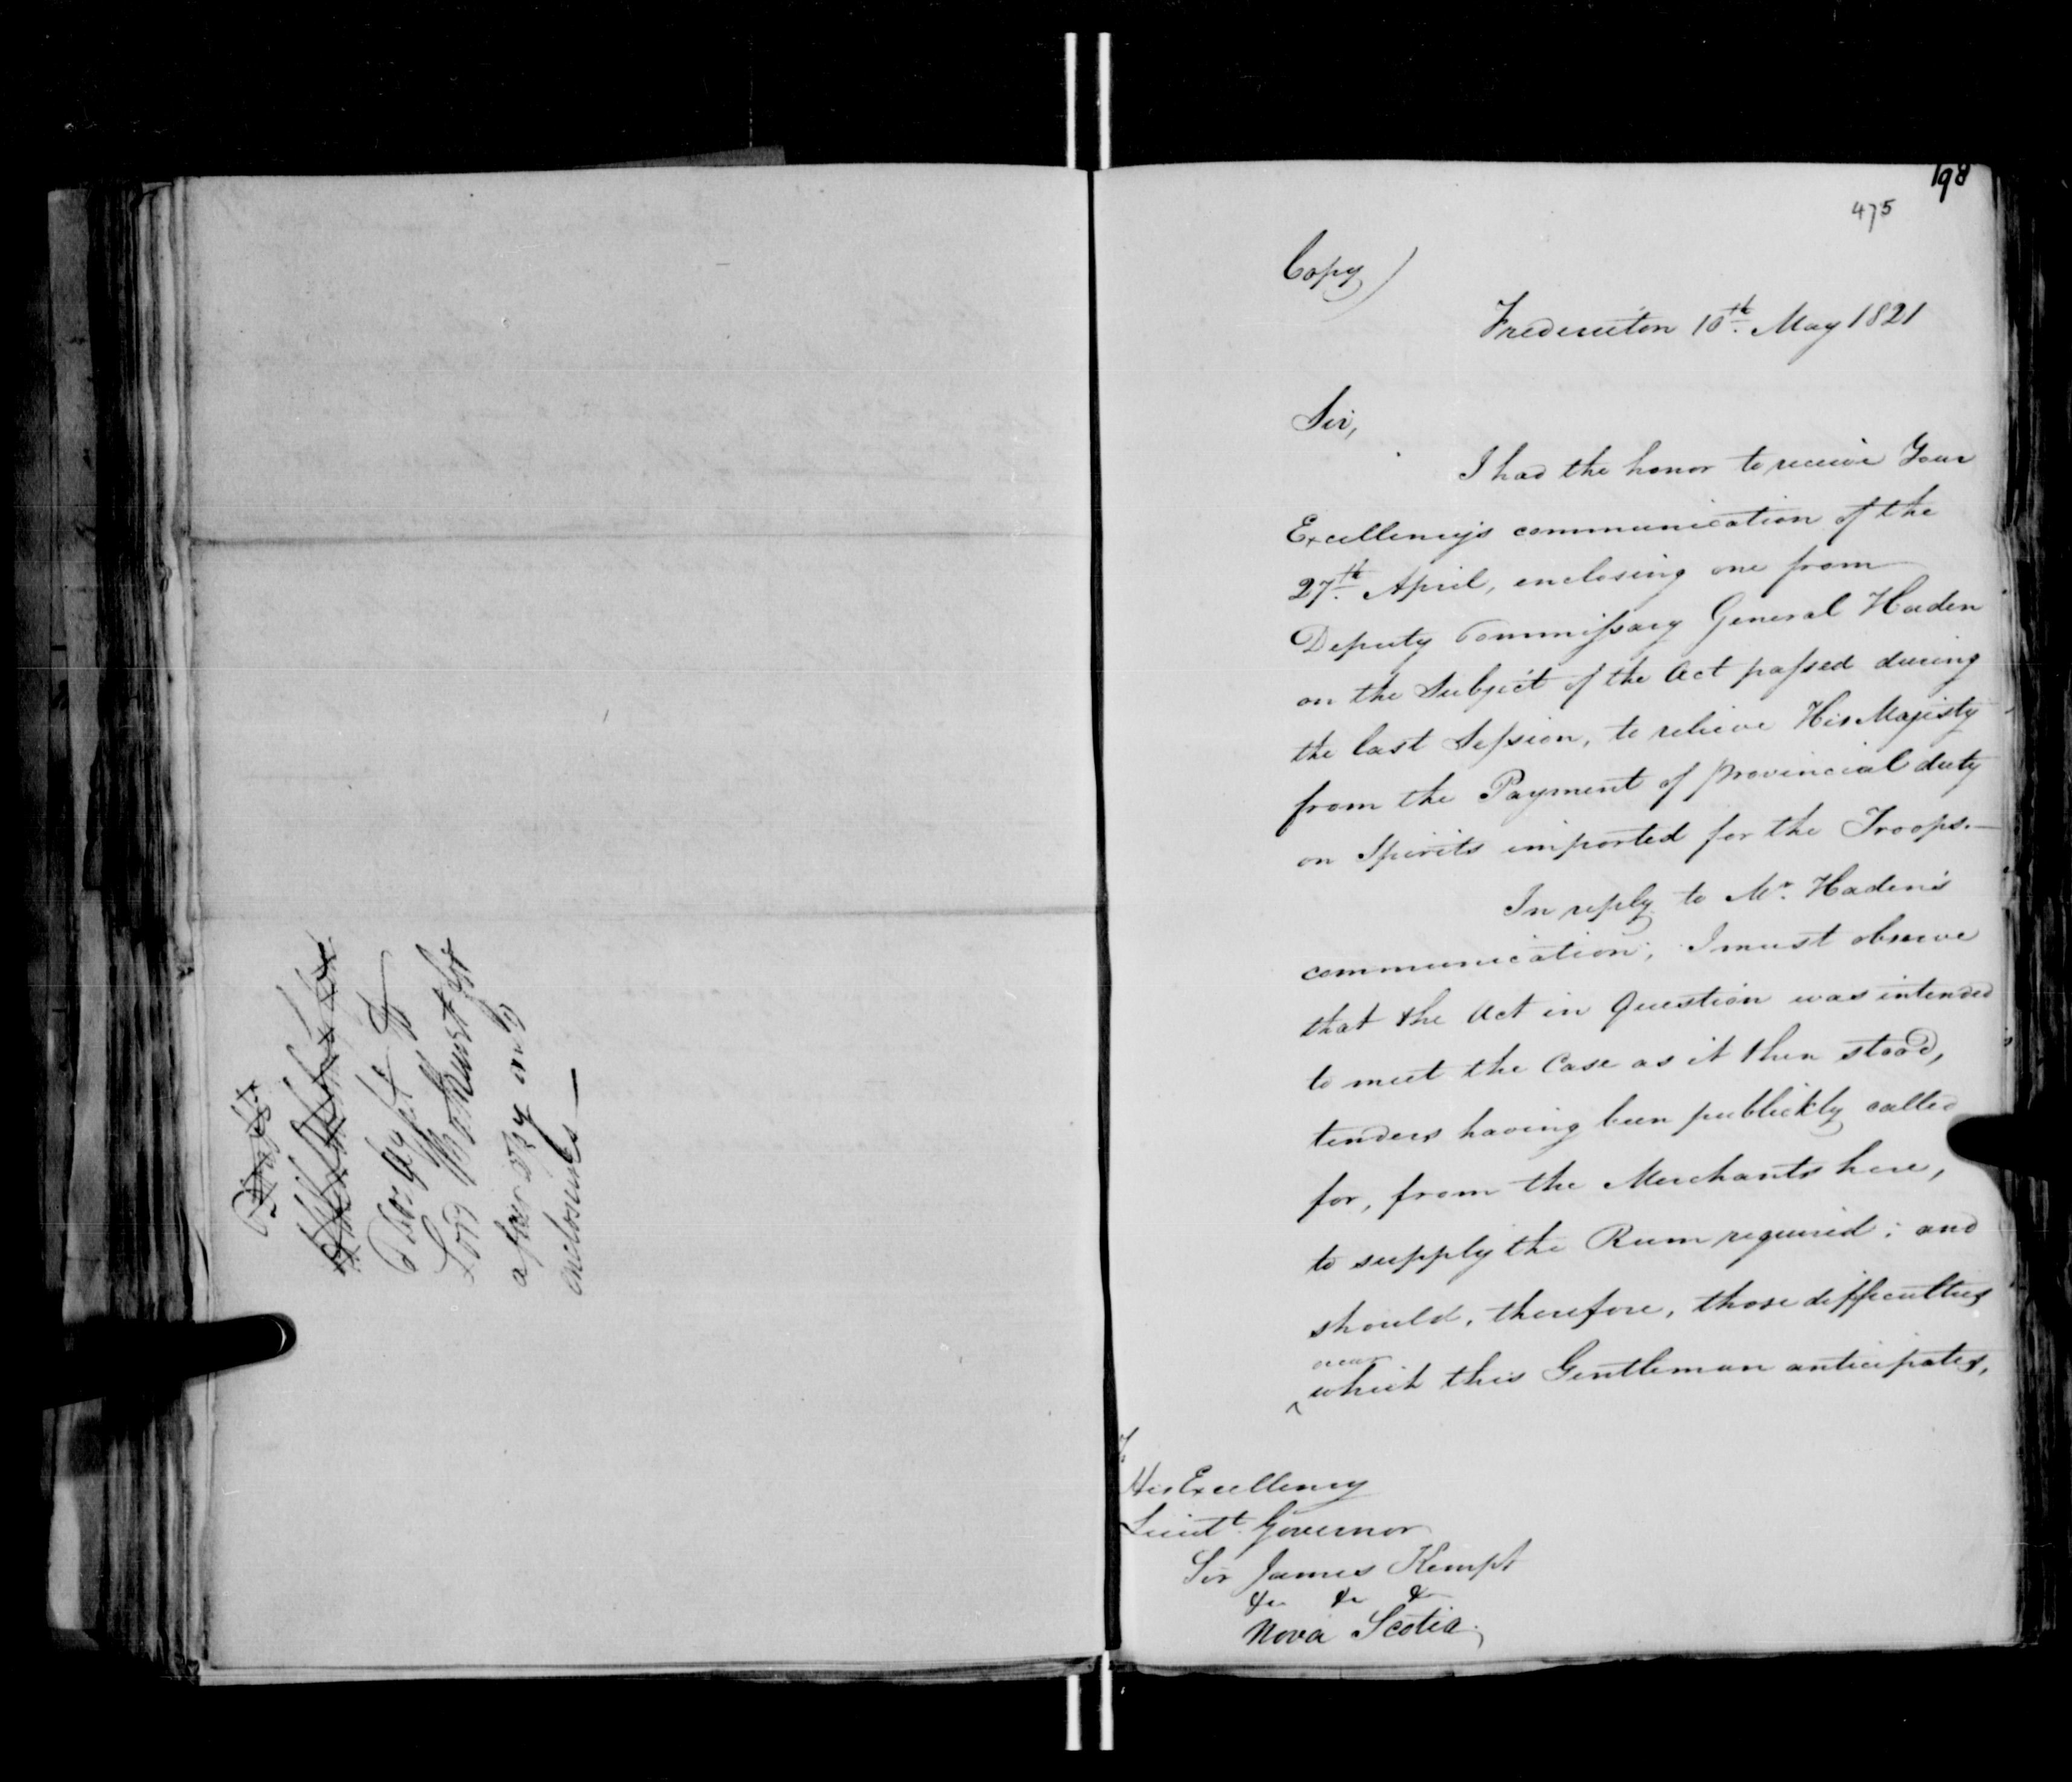 Lord Bathurst for
enclosures—
198
475
Copy)
Fredericton 10th. May 1821
Sir,
I had the honor to receive Your
Excellency's communication of the
27th. April, enclosing one from
Deputy Commissary General Haden
on the Subject of the Act passed during
the last Session, to relieve His Majesty
from the Payment of provincial duty
on Spirits imported for the Troops.—
In reply to Mr. Haden's
communication, I must observe
that the Act in Question was intended
to meet the Case as it then stood,
tenders having been publickly called
for, from the Merchants here,
to supply the Rum required; and
should, therefore, those difficulties
occur
^ which this Gentleman anticipates,
To
His Excellency
Lieutt. Governor
Sir James Kempt
&c &c &c
Nova Scotia.